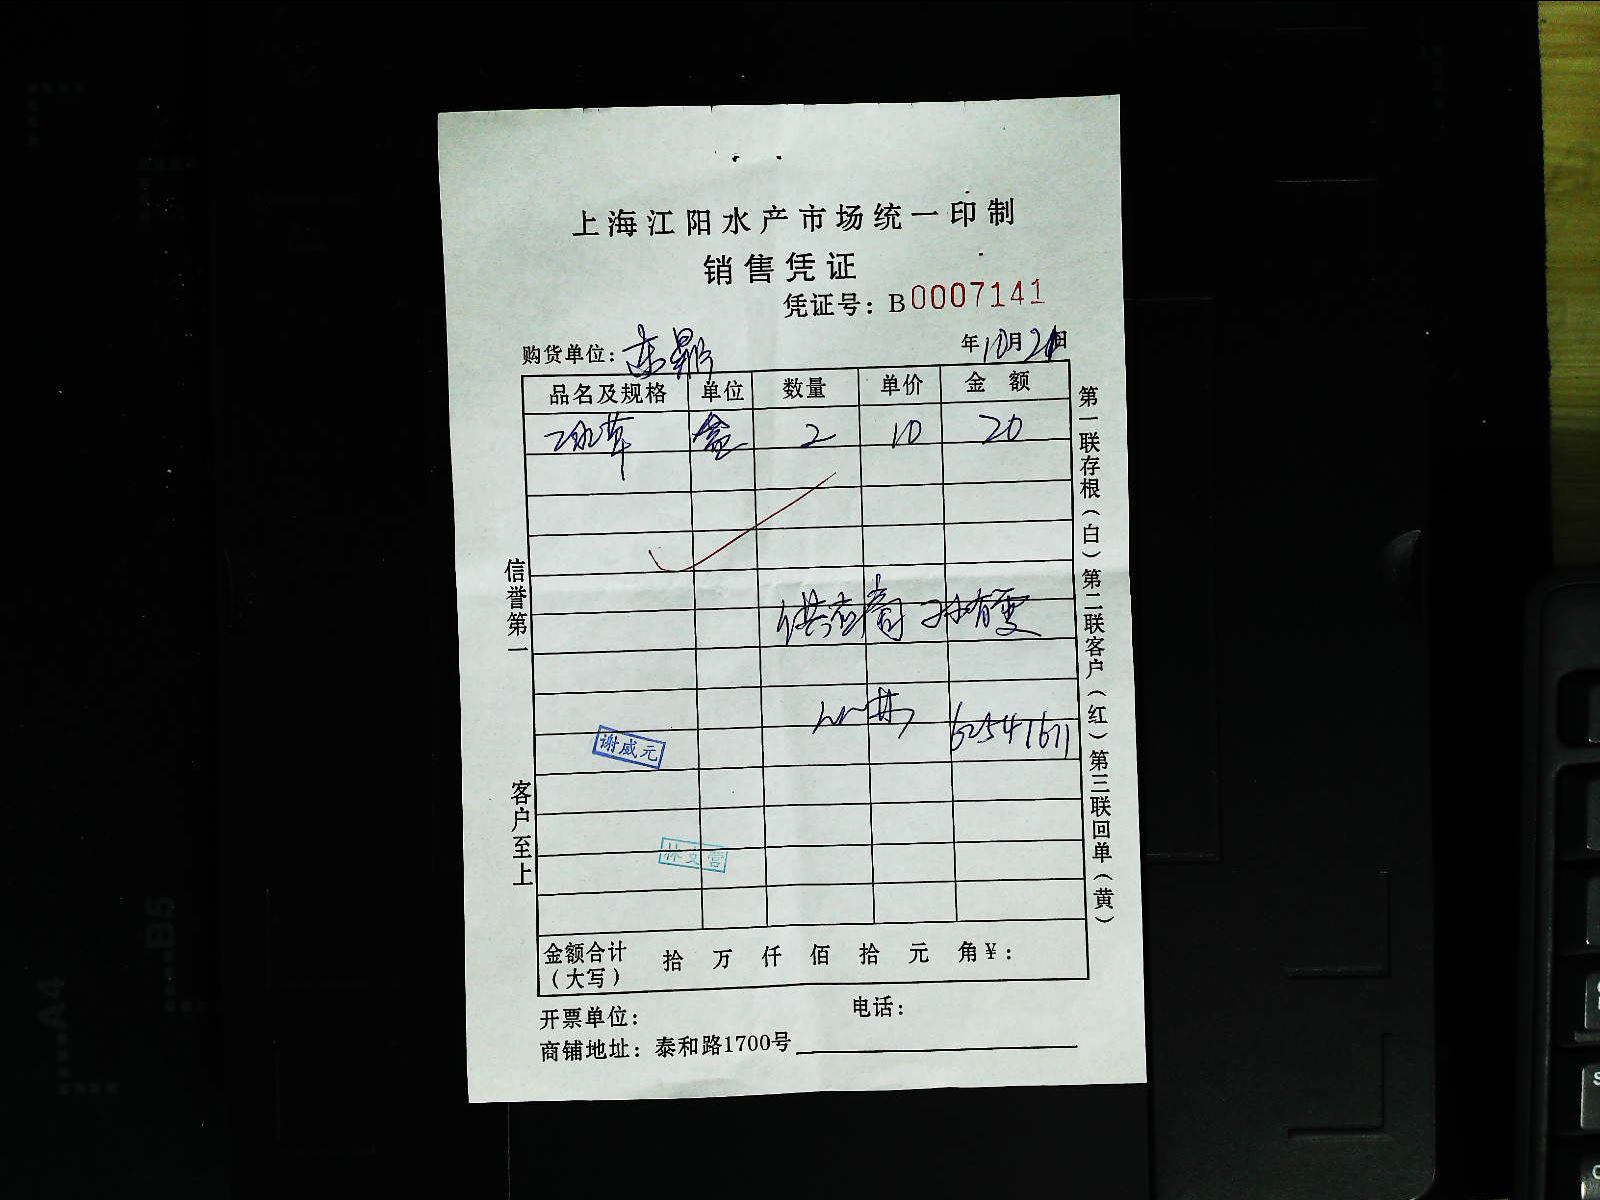 上海江阳水产市场统一印制
销售凭证
凭证号：B0007141
购货单位： 年10月2日
品名及规格 单位 数量 单价 金额
冰草 盒 2 10 20
供应商 孙有雯
62541671
谢威元
林文营
金额合计（大写） 拾 万 仟 佰 拾 元 角￥：
开票单位： 电话：
商铺地址：泰和路1700号
信誉第一 客户至上
第一联存根（白）第二联客户（红）第三联回单（黄）